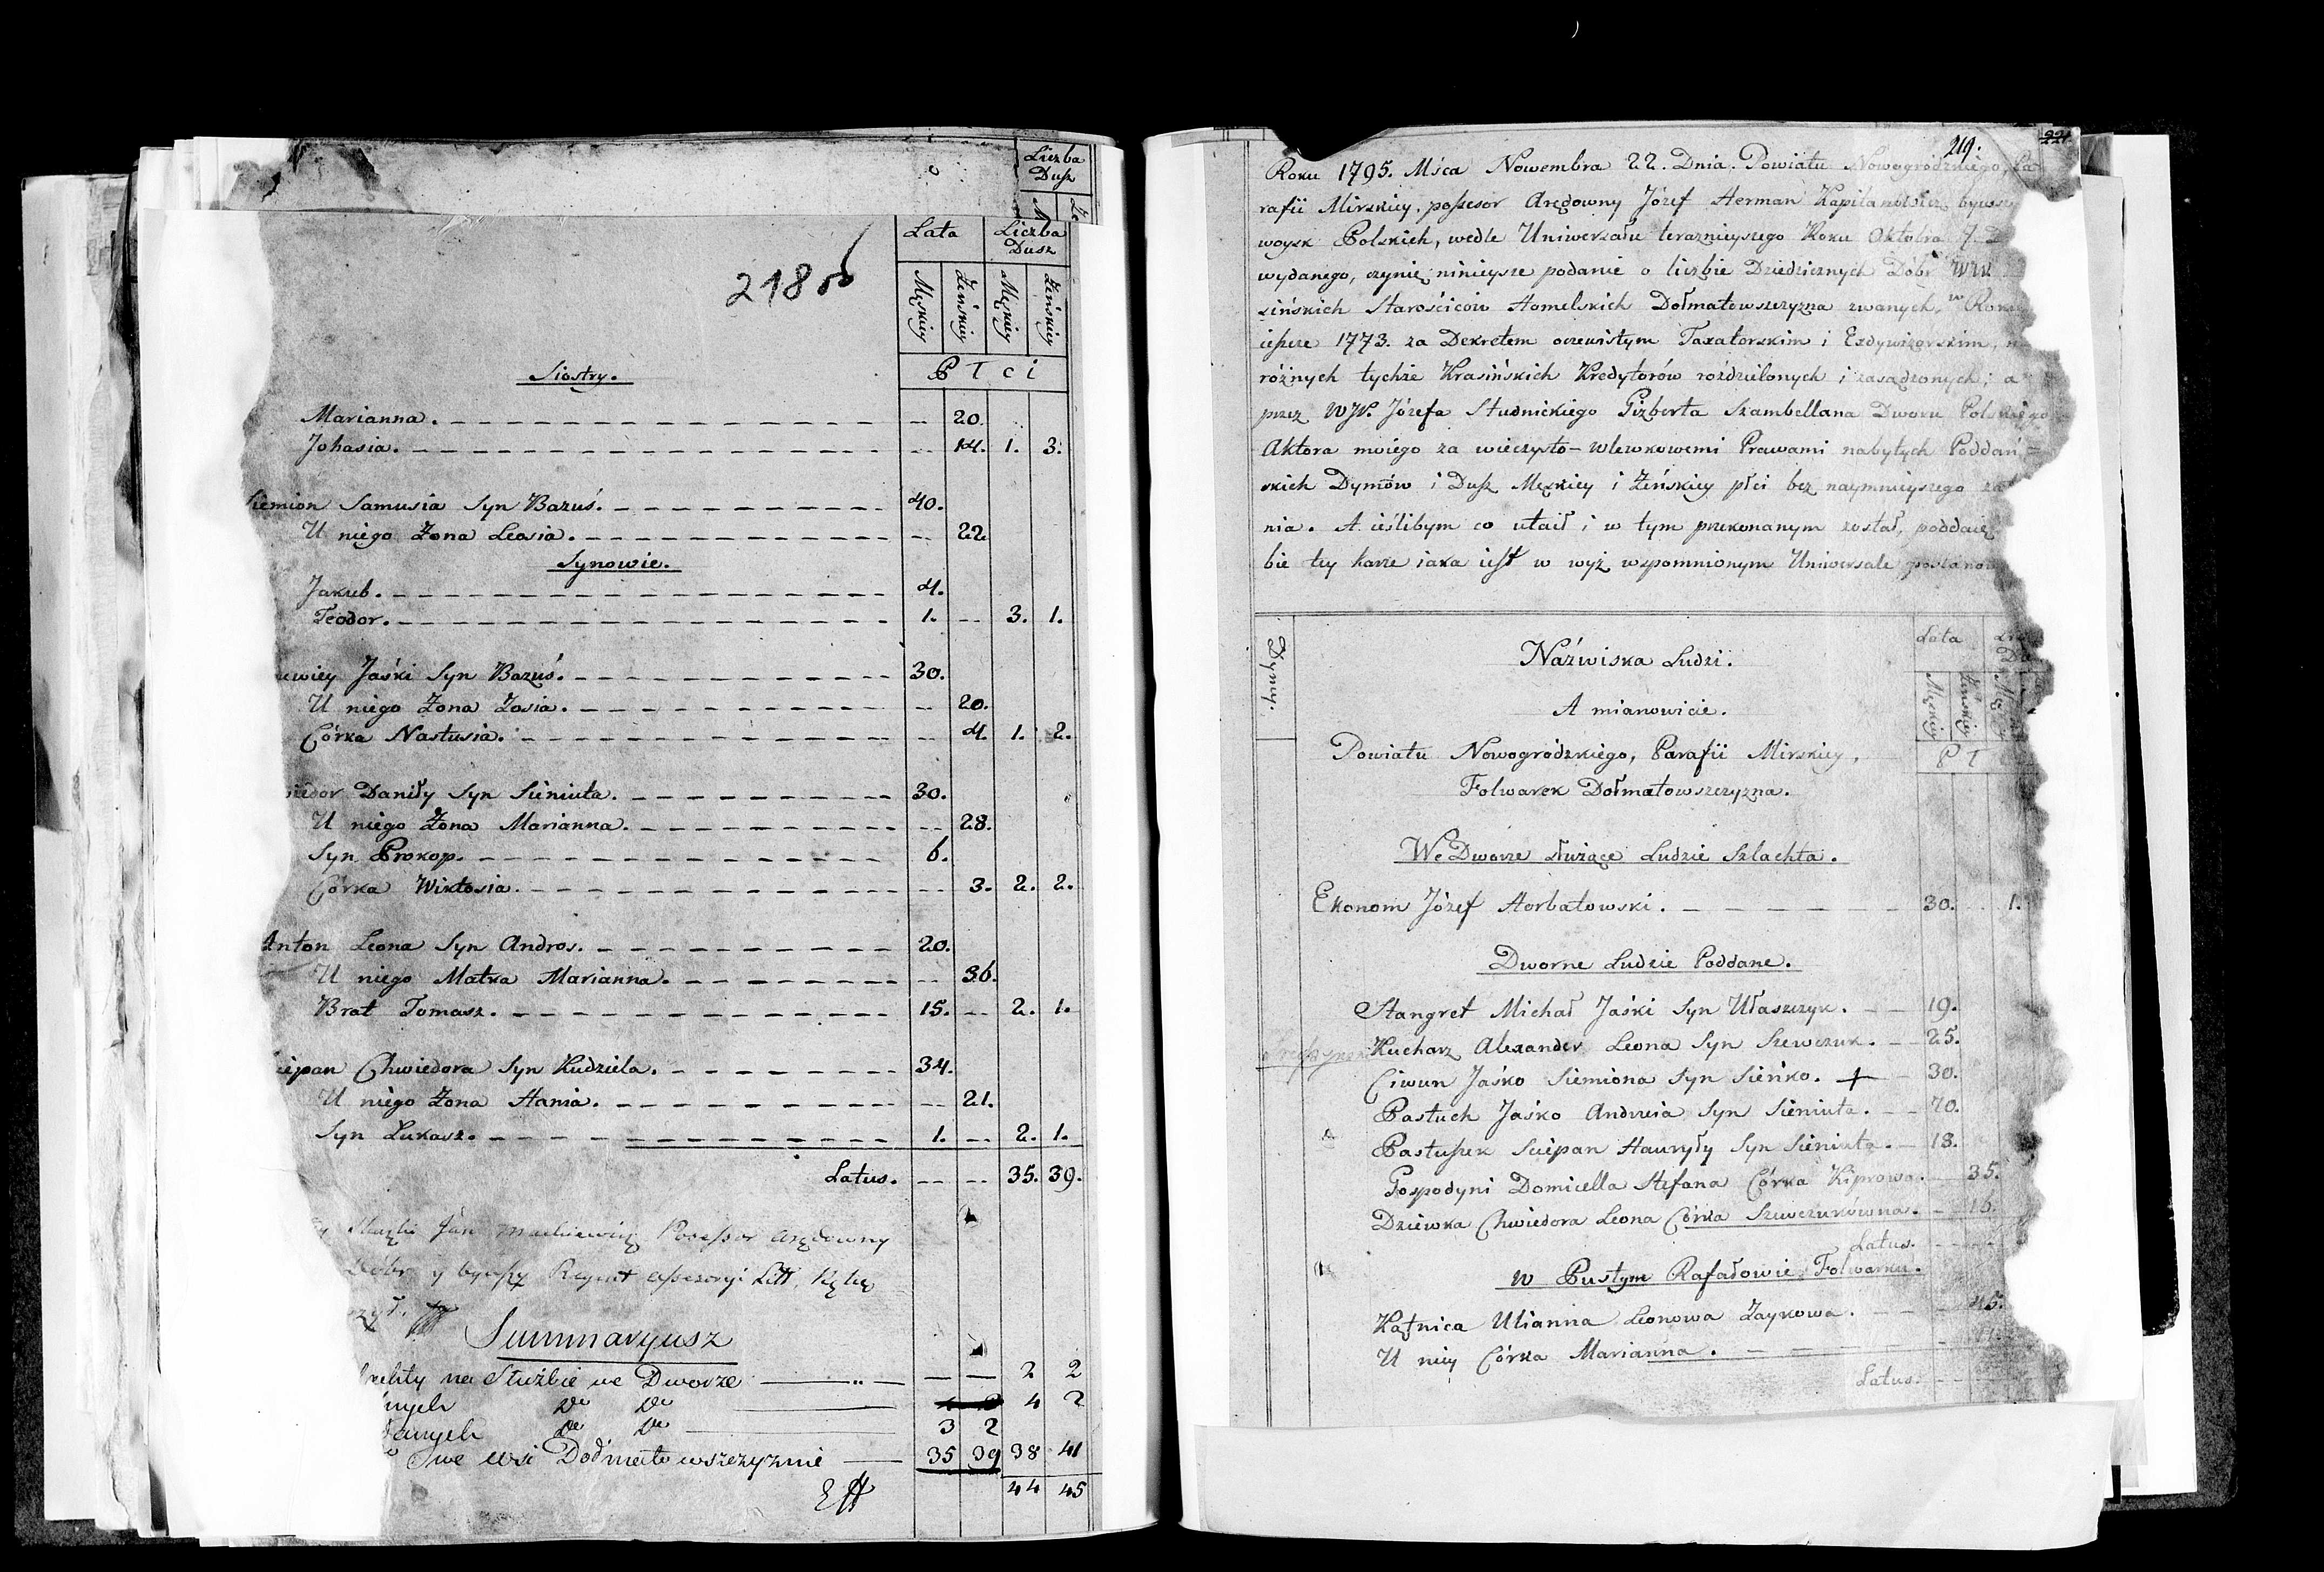 Liczba
Dusz
218
Lata
Liczba
Dusz
Męskiey
Żeńskiey
Męskiey
Żeńskiey
Płci
Siostry.
Marianna. 20.
Johasia. 14. 1. 3.
Siemion Samusia Syn Bazuś. 40.
U niego Żona Leosia. 22
Synowie.
Jakub. 4.
Teodor. 1. 3. 1.
Jaśki Syn Bazuś. 30.
U niego Żona Zosia. 20.
Córka Nastusia. 4. 1. 2.
Daniły Syn Sieniuta. 30.
U niego Żona Marianna. 28.
Syn Prokop. 6.
Córka Wiktosia. 3. 2. 2.
Anton Leona Syn Andros. 20.
U niego Matka Marianna. 36.
Brat Tomasz. 15. 2. 1.
Chwiedora Syn Kudziela. 34.
U niego Żona Hania. 21.
Syn Łukasz. 1. 2. 1.
Latus. 35. 39.
Jan Possessor Arędowny
Dóbr y bywszy Regent
Summaryusz
na Służbie we Dworze 2 2
4 2
3 2
we wsi Dołmatowszczyznie 35 39 38 41
44 45
219.
221
Roku 1795. Mśca Nowembra 22. Dnia. Powiatu Nowogródzkiego, Pa
rafii Mirskiey, possesor Arędowny Józef Herman Kapitanowicz bywszy
woysk Polskich, wedle Uniwersału teraznieyszego Roku Oktobra 7. D
wydanego, czynię ninieysze podanie o liczbie Dziedzicznych Dóbr
sińskich Starościców Homelskich Dołmatowszczyzna zwanych, w Roku
ieszcze 1773. za Dekretem oczewistym Taxatorskim i Exdywizorskim,
różnych tychże Krasińskich Kredytorów rozdzielonych i zasądzonych; a
przez WJP. Józefa Studnickiego Gizberta Szambellana Dworu Polskiego
Aktora moiego za wieczysto-wlewkowemi Prawami nabytych Poddań-
skich Dymów i Dusz Męskiey i Żeńskiey płci bez naymnieyszego
nia. A ieślibym co utaił i w tym przekonanym został, poddaię
bie tey karze iaka iest w wyż wspomnionym Uniwersale postanow
Dymy.
Nazwiska Ludzi.
Lata
Męskiey
Żeńskiey
A mianowicie.
Powiatu Nowogródzkiego, Parafii Mirskiey,
Folwarek Dołmatowszczyzna.
We Dworze służące Ludzie Szlachta.
Ekonom Józef Horbatowski. 30. 1.
Dworne Ludzie Poddane.
Stangret Michał Jaśki Syn Ułaszczyk. 19.
Kucharz Alexander Leona Syn Szewczuk. 25.
Ciwun Jaśko Siemiona Syn Sieńko. + 30.
Pastuch Jaśko Andrzeia Syn Sieniuta. 70.
Pastuszek Sciepan Hauryły Syn Sieniuta. 18.
Gospodyni Domicella Stefana Córka Kiprowa. 35.
Dziewka Chwiedora Leona Córka Szewczukówna. 16.
Latus.
w Pustym Rafałowie Folwarku.
Kątnica Ulianna Leonowa Zaykowa. 45.
U niey Córka Marianna.
Latus.